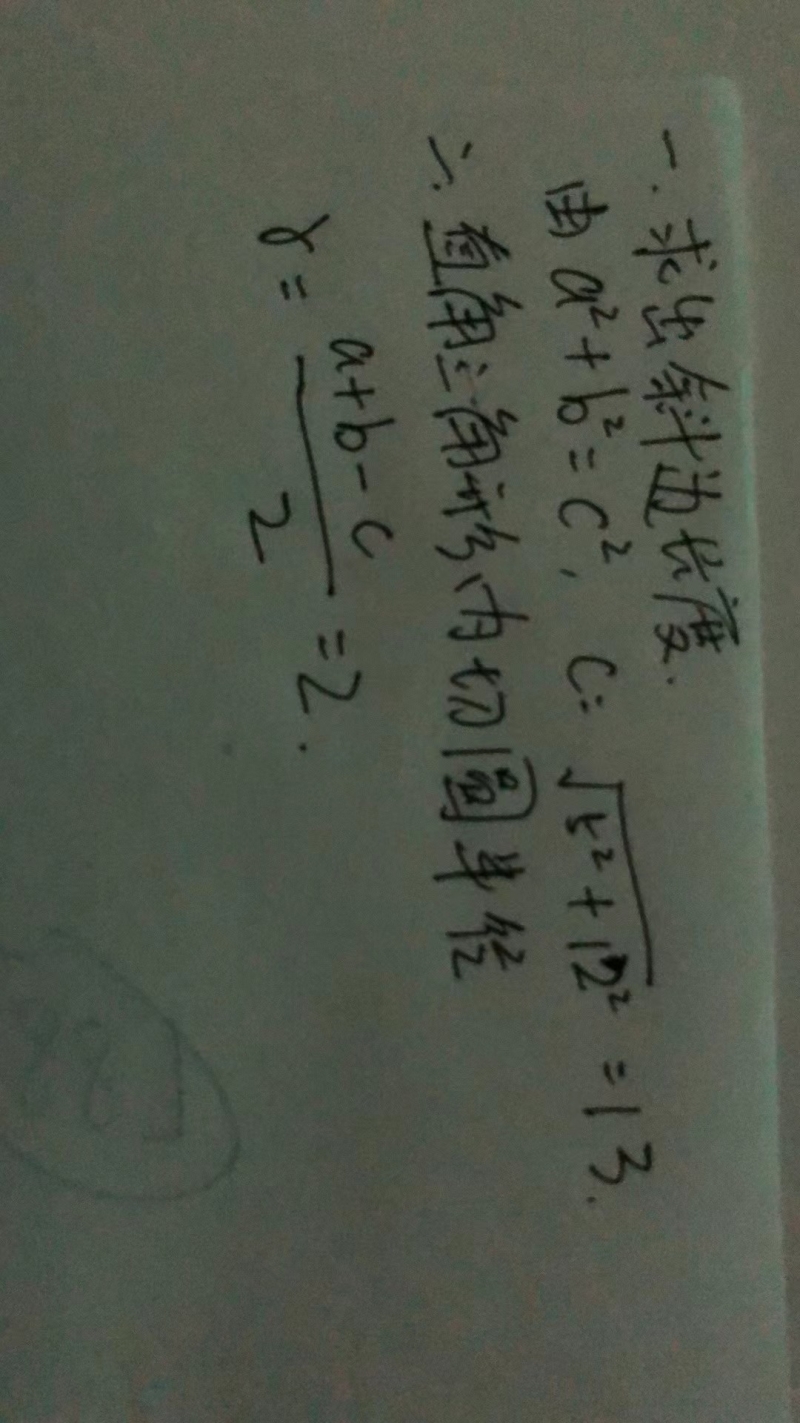 一. 求出斜边长度.
由 a²+b²=c², c=√(5²+12²) =13.
二. 直角三角形内切圆半径
r = (a+b-c)/2 =2.